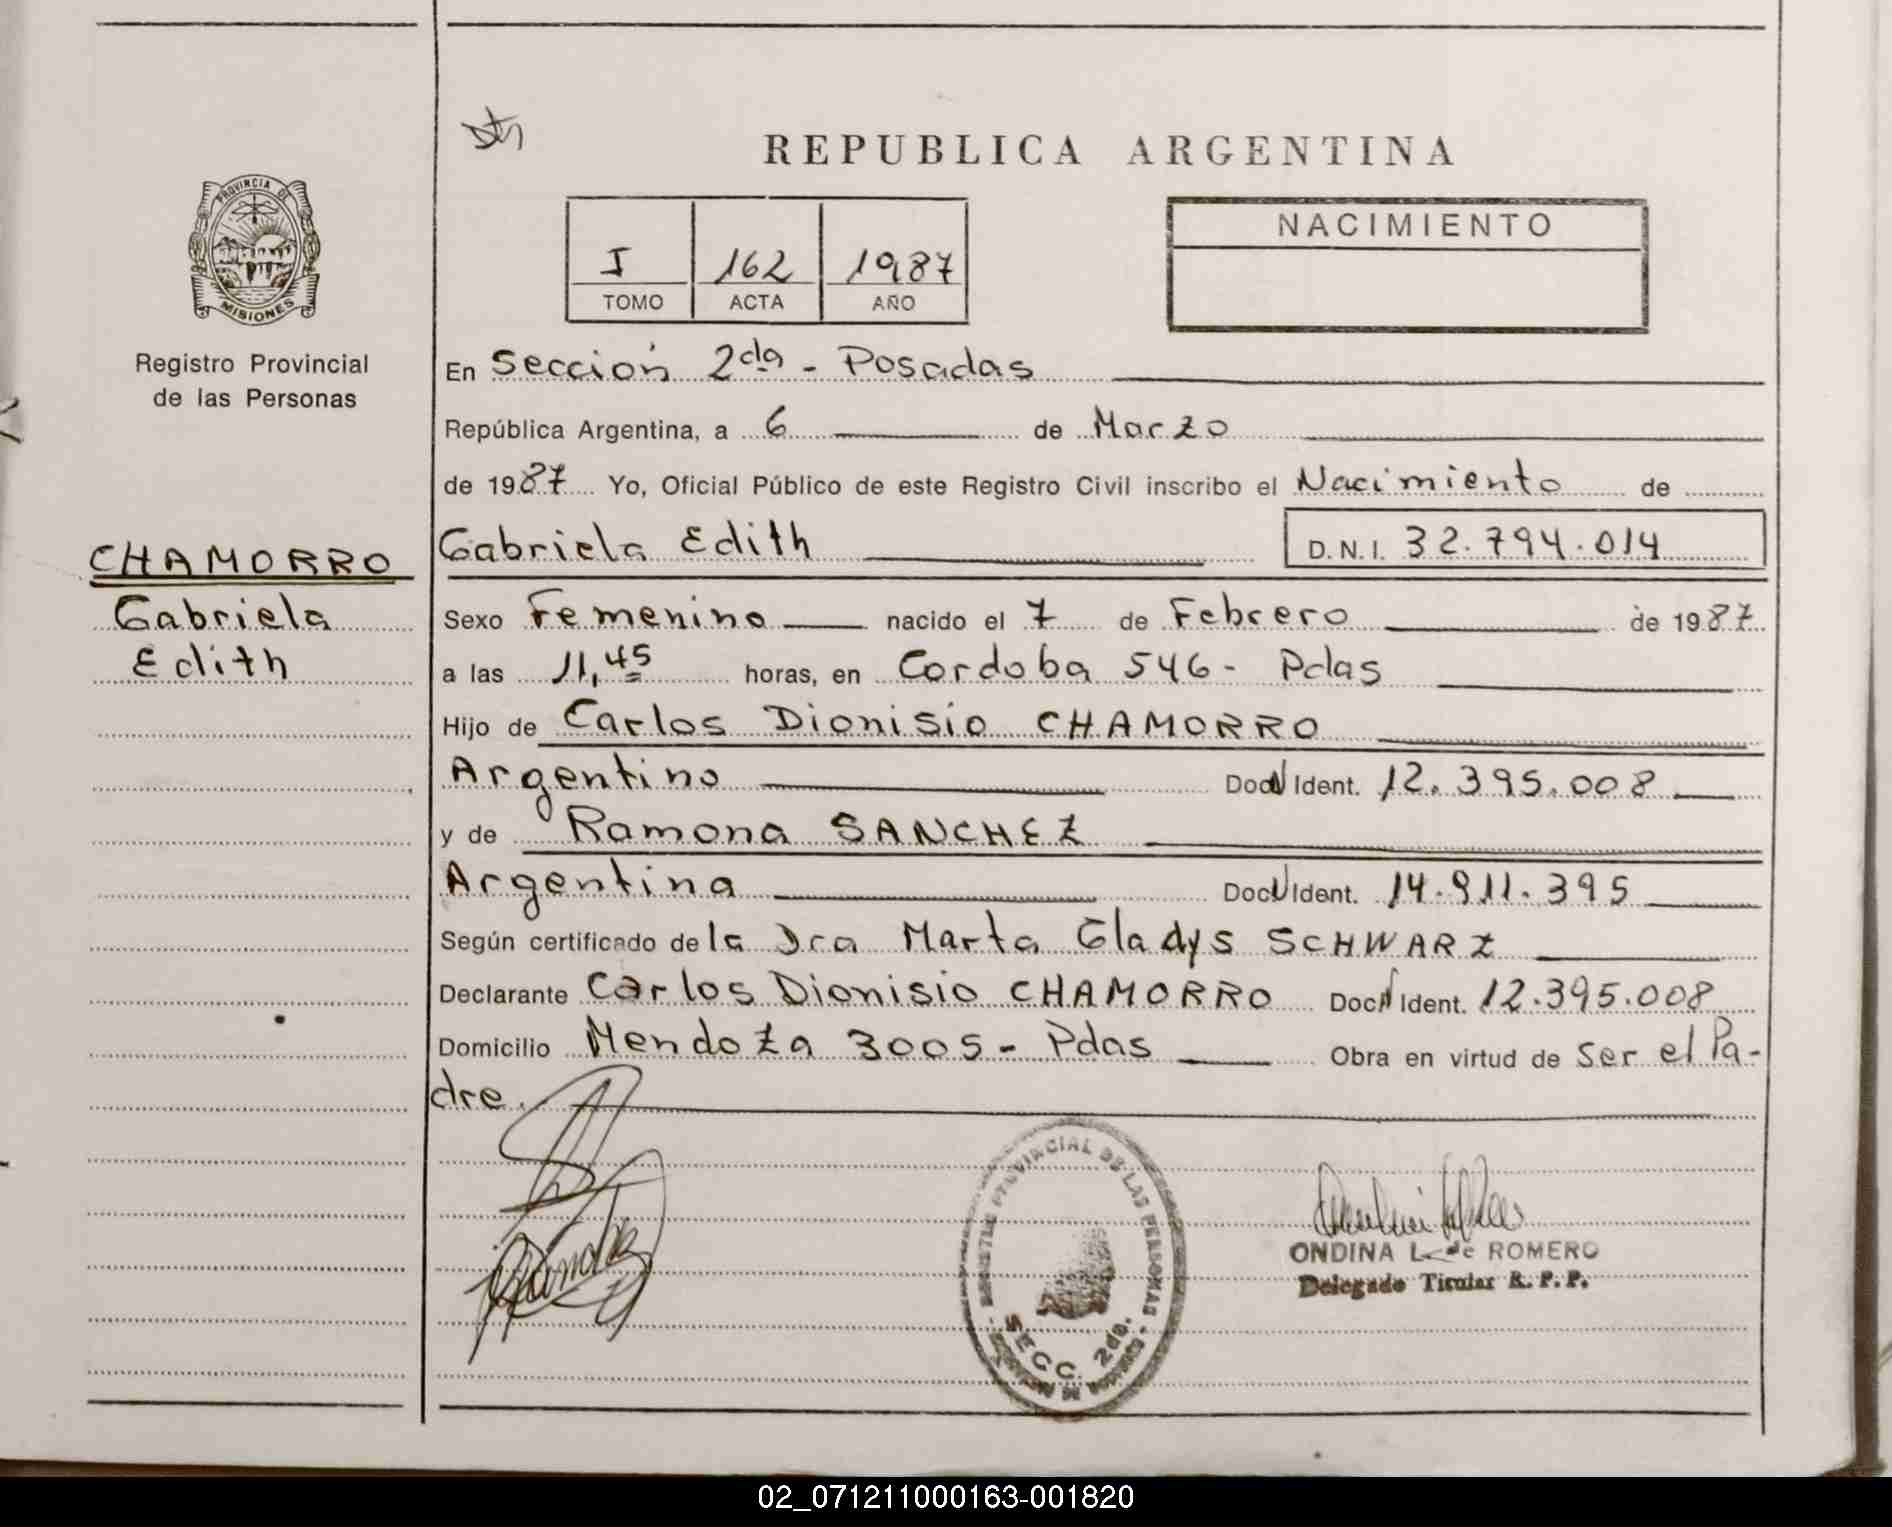 REPUBLICA ARGENTINA
PROVINCIA DE
MISIONES
Registro Provincial
de las Personas
CHAMORRO
Gabriela
Edith
I 162 1987
TOMO ACTA AÑO
NACIMIENTO
En Sección 2da - Posadas
República Argentina, a 6 de Marzo
de 1987 Yo, Oficial Público de este Registro Civil inscribo el Nacimiento de
Gabriela Edith D.N.I. 32.794.014
Sexo Femenino nacido el 7 de Febrero de 1987
a las 11,45 horas, en Cordoba 546 - Pdas
Hijo de Carlos Dionisio CHAMORRO
Argentino Doc. Ident. 12.395.008
y de Ramona SANCHEZ
Argentina Doc. Ident. 14.911.395
Según certificado de la Dra Marta Gladys SCHWARZ
Declarante Carlos Dionisio CHAMORRO Doc. Ident. 12.395.008
Domicilio Mendoza 3005 - Pdas Obra en virtud de Ser el Pa-
dre.
PROVINCIAL DE LAS PERSONAS
SECC. 2da.
ONDINA L. de ROMERO
Delegado Titular R. P. P.
02_071211000163-001820